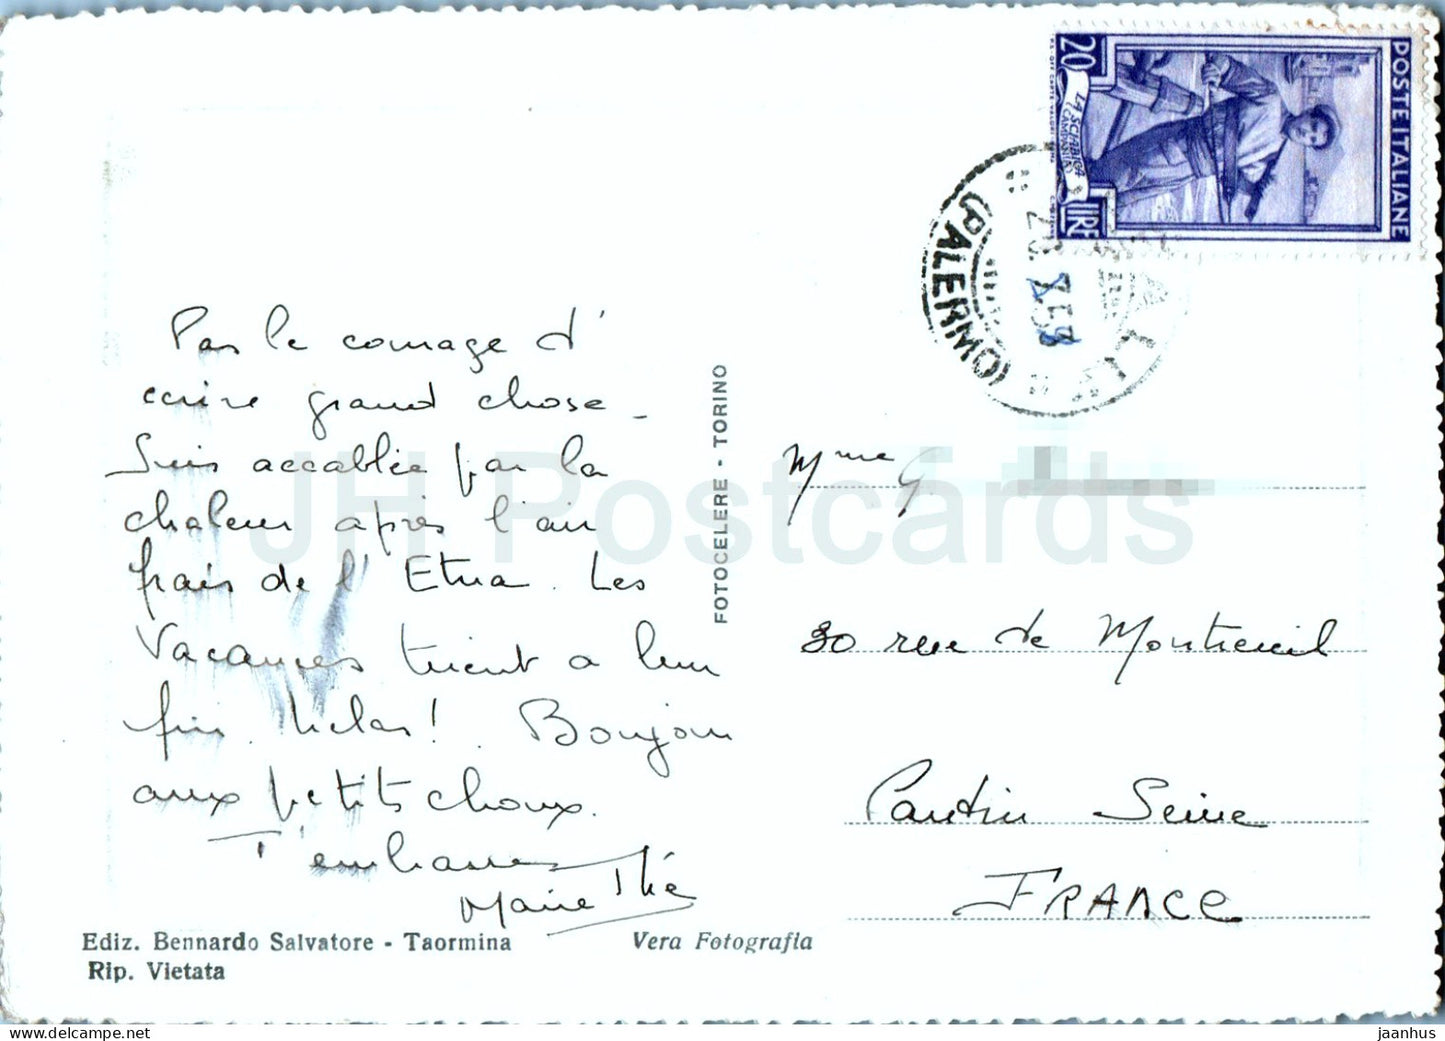 POSTE ITALIANE
20
LIRE
LA SCIABICA
(CAMPANIA)
(PALERMO)
Pas le courage d'
écrire grand chose -
Suis accablée par la
chaleur après l'air
frais de l'Etna. Les
vacances tirent a leur
fin. hélas! Bonjour
aux petits choux.
T'embrasse
Marie Thé
FOTOCELERE - TORINO
Mme G
30 rue de Montreuil
Pantin Seine
FRANCE
Ediz. Bennardo Salvatore - Taormina
Rip. Vietata
Vera Fotografia
JH Postcards
jaanhus | ecrater.com